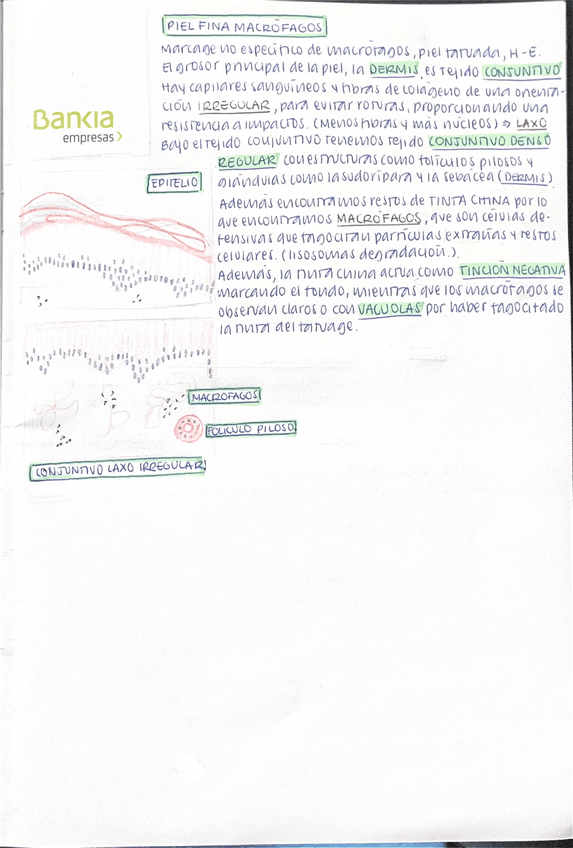 PIEL FINA MACRÓFAGOS
Marcage no específico de macrófagos, piel tatuada, H-E.
El grosor principal de la piel, la DERMIS, es tejido CONJUNTIVO
Hay capilares sanguíneos y fibras de colágeno de una orienta-
ción IRREGULAR, para evitar roturas, proporcionando una
resistencia a impactos. (Menos fibras y más núcleos) → LAXO
Bajo el tejido conjuntivo tenemos tejido CONJUNTIVO DENSO
REGULAR con estructuras como folículos pilosos y
glándulas como la sudorípara y la sebácea (DERMIS)
Además encontramos restos de TINTA CHINA por lo
que encontramos MACRÓFAGOS, que son células de-
fensivas que fagocitan partículas extrañas y restos
celulares. (lisosomas degradación.).
Además, la tinta china actua como TINCIÓN NEGATIVA
marcando el fondo, mientras que los macrófagos se
observan claros o con VACUOLAS por haber fagocitado
la tinta del tatuage.
Bankia
empresas
EPITELIO
MACROFAGOS
FOLICULO PILOSO
CONJUNTIVO LAXO IRREGULAR